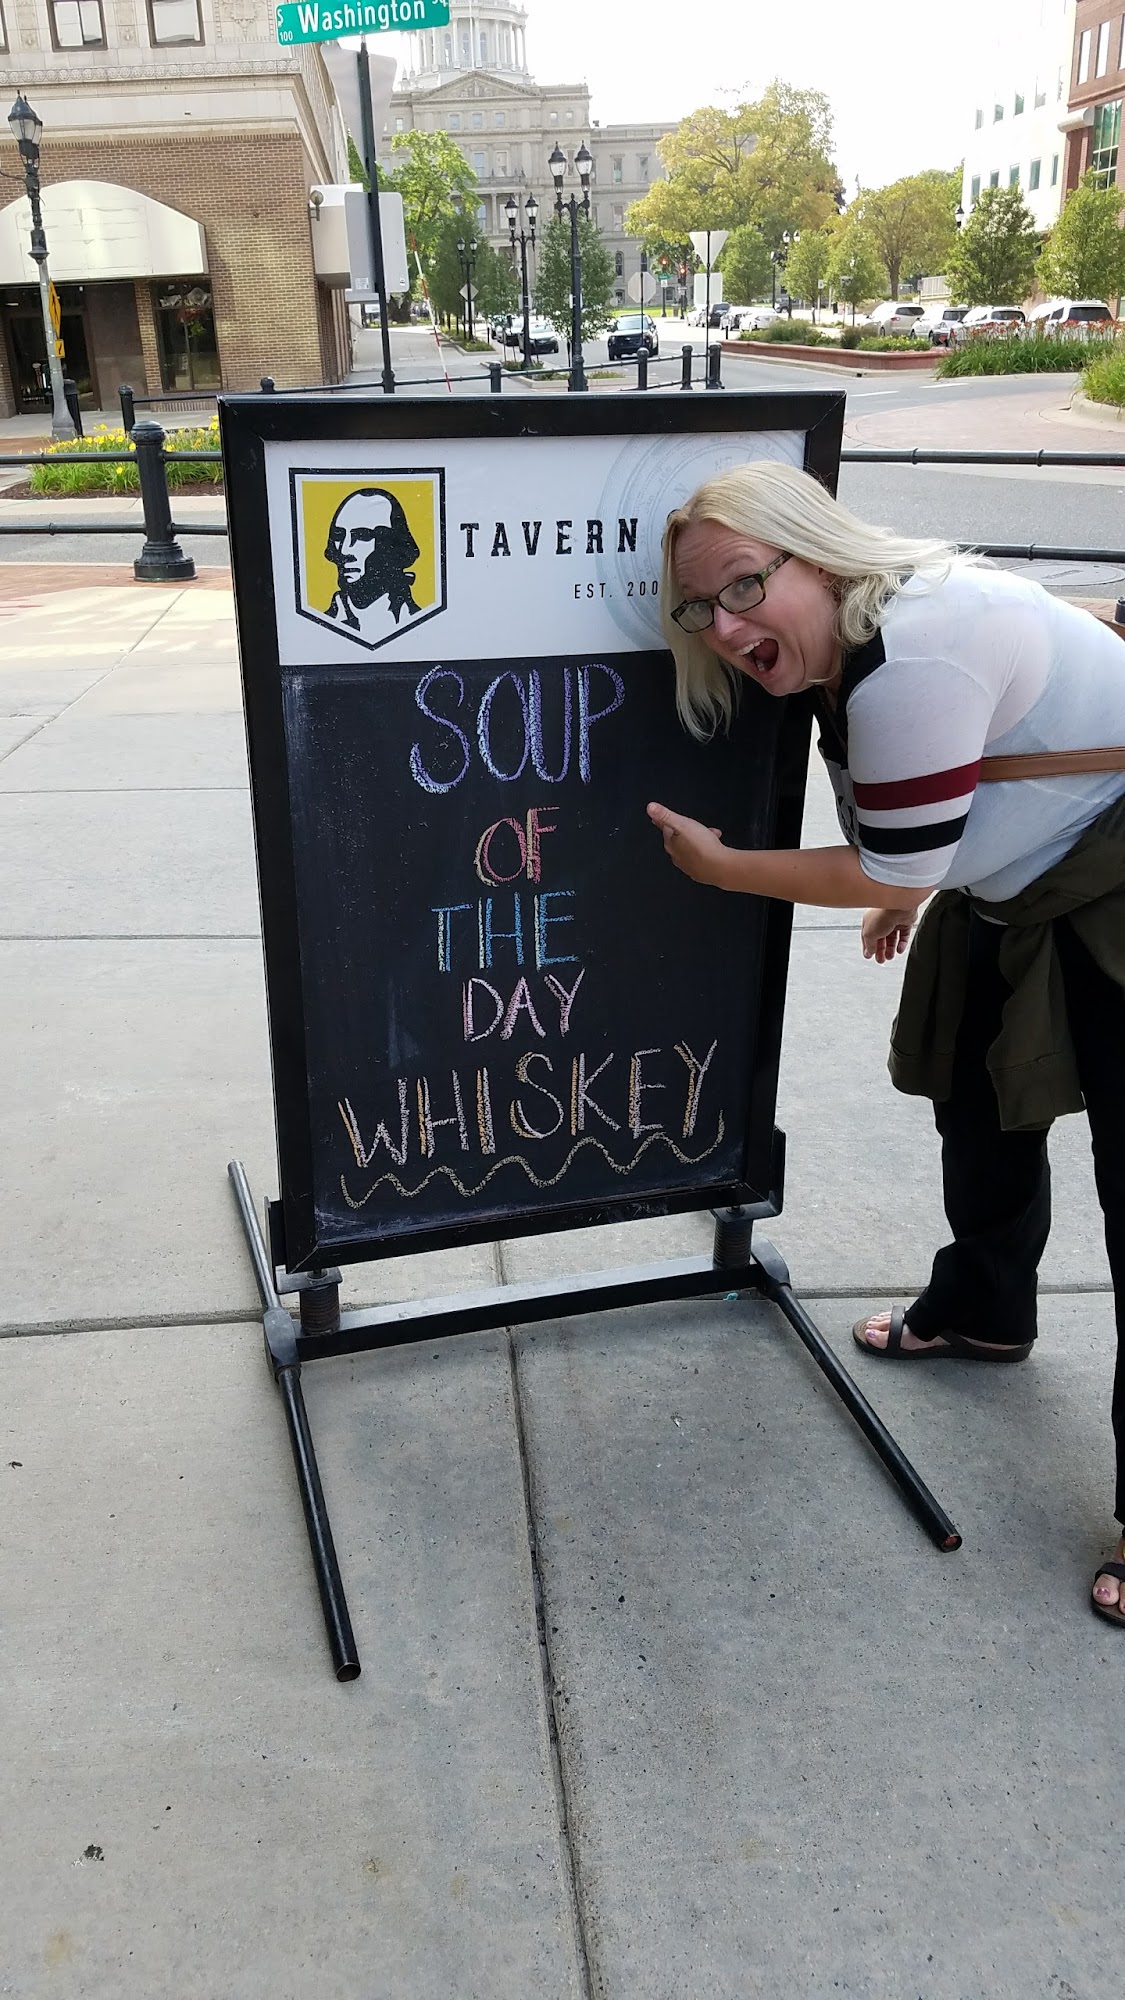 S
100
Washington Sq
TAVERN
EST. 200
SOUP
OF
THE
DAY
WHISKEY